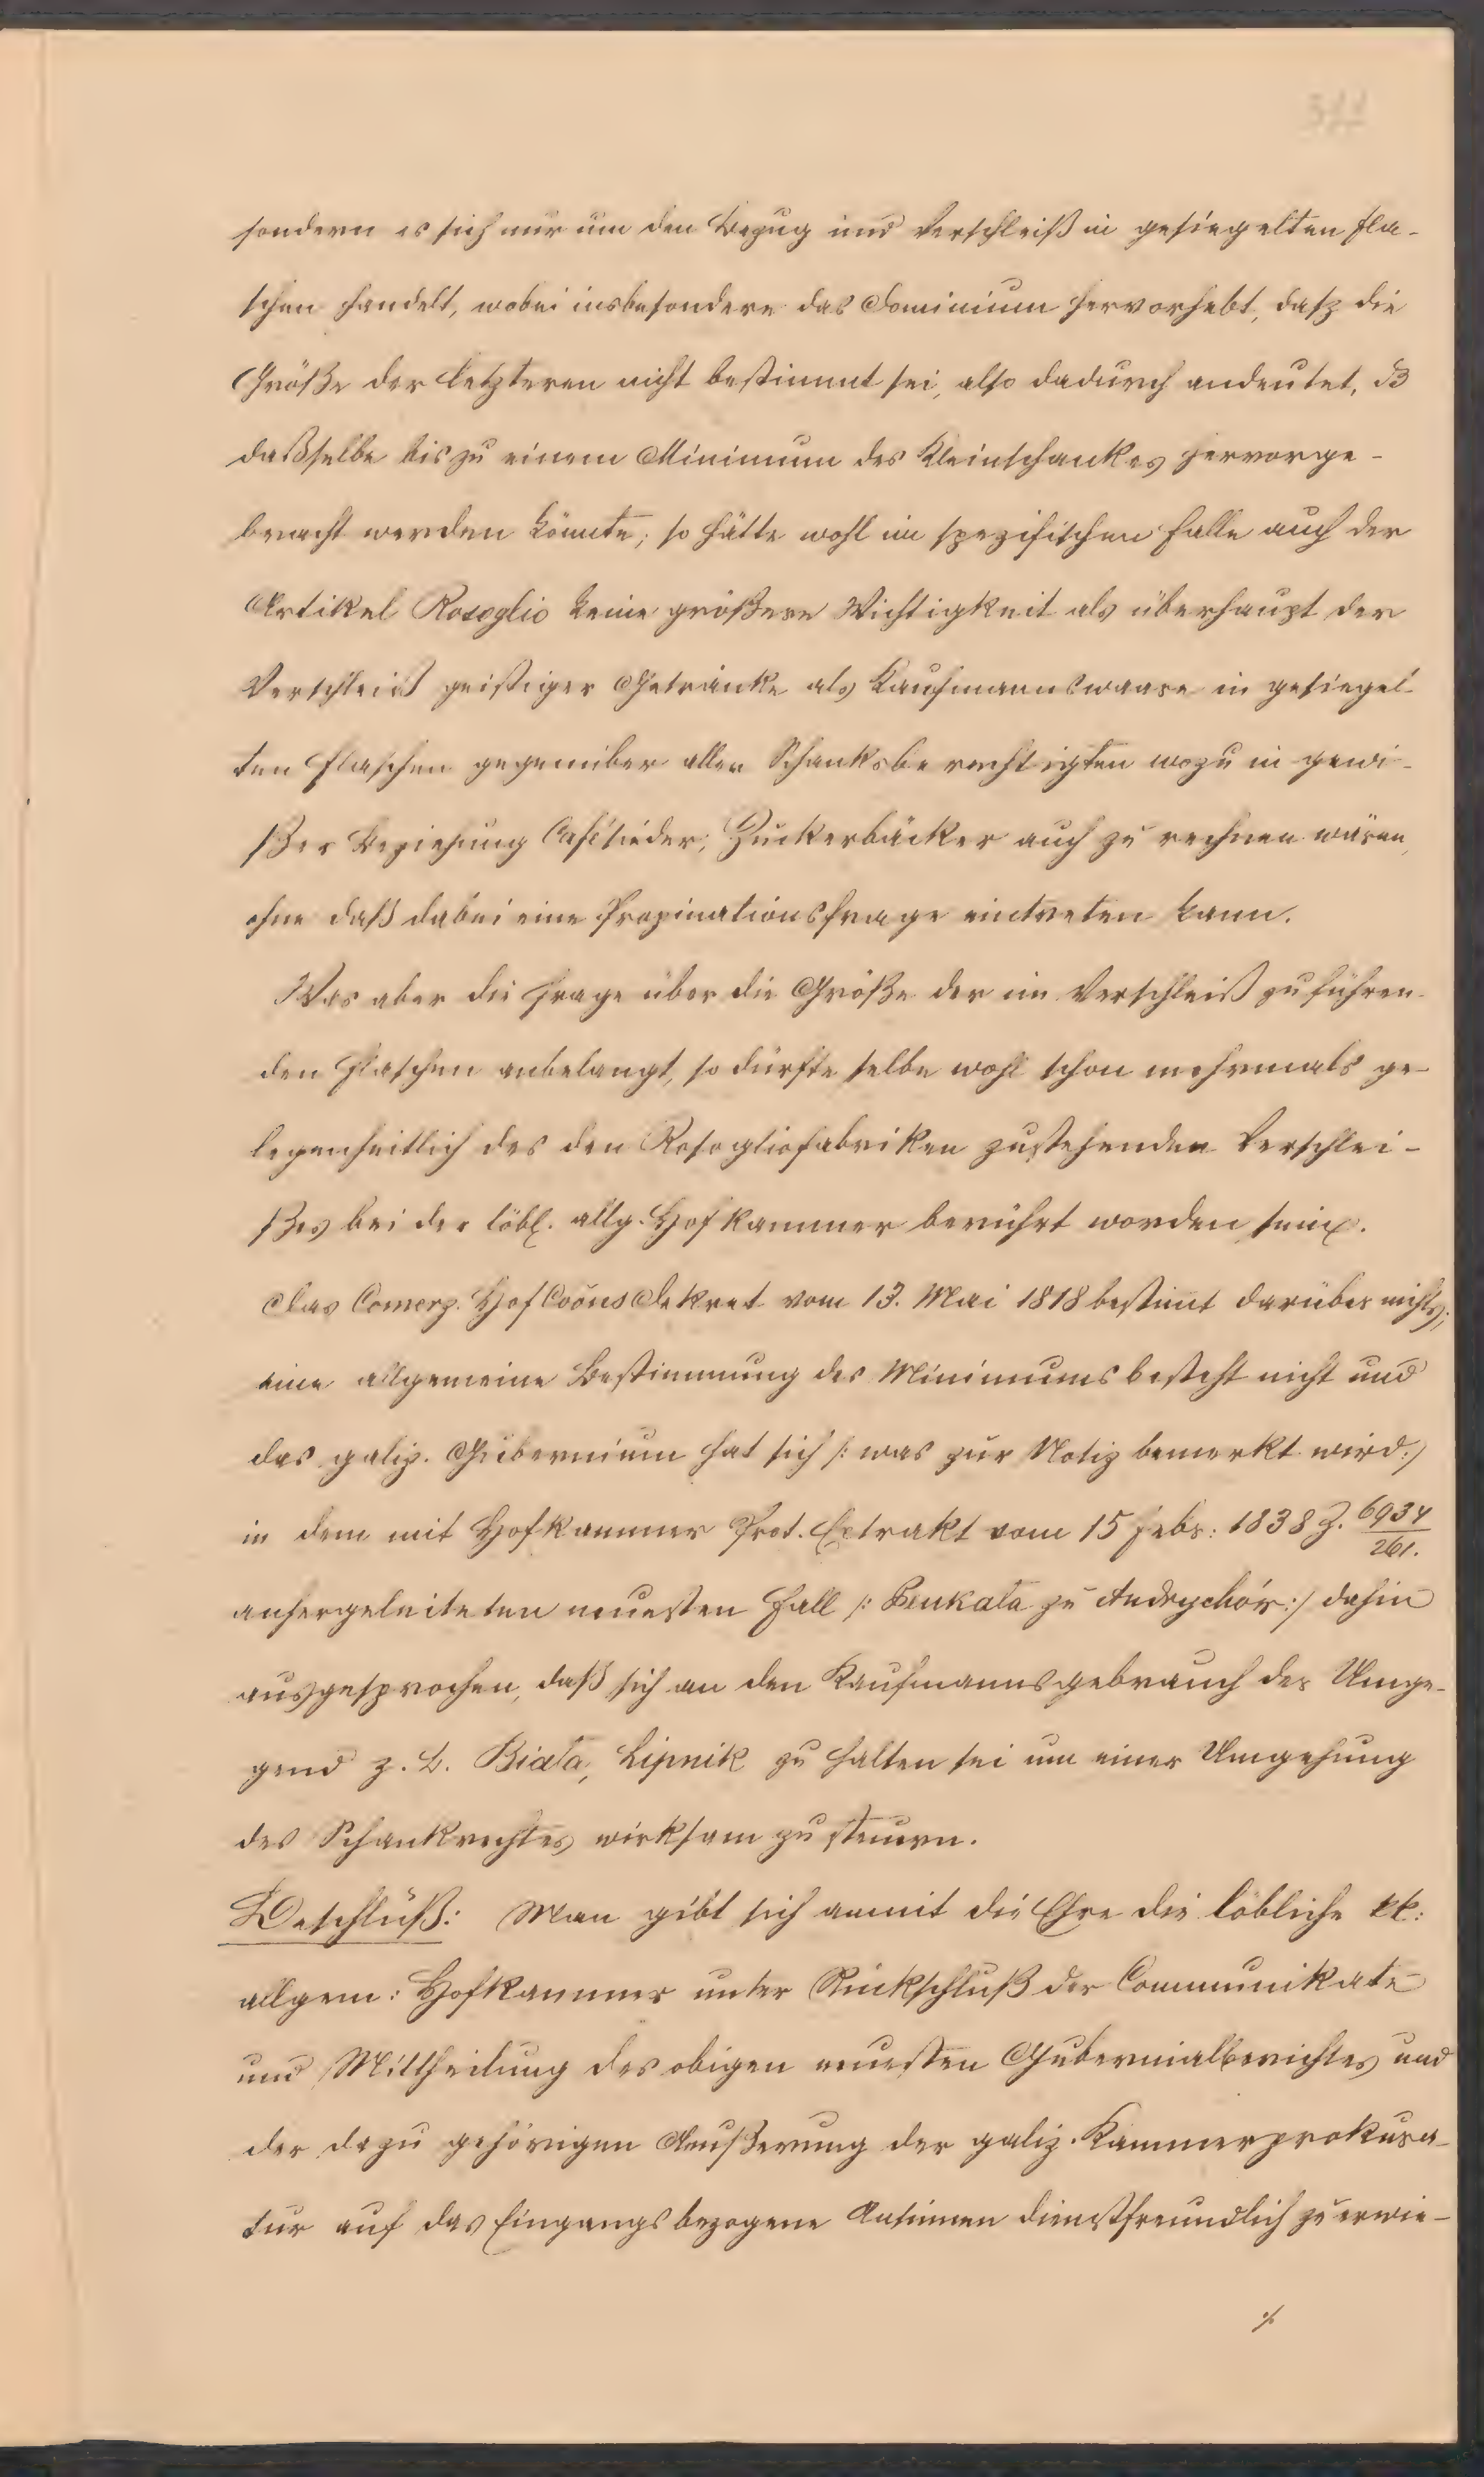 sondern es sich nur um den Bezug und Verschleiß in gesiegelten Fla-
schen handelt, wobei insbesondere das Dominium hervorhebt, dasz die
Größe der letzteren nicht bestimmt sei, also dadurch andeutet, dß
daßselbe bis zu einem Minimum des Kleinschankes hervorge-
bracht werden könnte; so hätte wohl im spezifischen Falle auch der
Artikel Rosoglio keine größere Wichtigkeit als überhaupt der
Verschleiß geistiger Getränke als Kaufmannswaare in gesiegel-
ten Flaschen gegenüber allen Schanksberechtigten wozu in gewi-
ßer Beziehung Cafésieder, Zuckerbäcker auch zu rechnen wären,
ohne daß dabei eine Propinationsfrage eintreten kann.
Was aber die Frage über die Größe der im Verschleiß zu führen-
den Flaschen anbelangt, so dürfte selbe wohl schon mehrmals ge-
legenheitlich des den Rosogliofabriken zustehenden Verschlei-
ßes bei der löbl. allg. Hofkammer berührt worden sein.
Das Comerz. HofCoõns Dekret vom 13. Mai 1818 bestimt darüber nichts;
eine allgemeine Bestimmung des Minimums besteht nicht und
das galiz. Gubernium hat sich /: was zur Notiz bemerkt wird :/
in dem mit Hofkammer Prot. Extrakt vom 15 Febr: 1838 Z. 6934/261.
anhergeleiteten neuesten Fall /: Benkala zu Andrychór :/ dahin
ausgesprochen, daß sich an den Kaufmannsgebrauch der Umge-
gend z. B. Biała, Lipnik zu halten sei um einer Umgehung
des Schankrechtes wirksam zu steuern.
Beschluß: Man gibt sich anmit die Ehre die löbliche kk:
allgem: Hofkammer unter Rückschluß der Communikate
und Mittheilung des obigen neuesten Gubernialberichtes und
der dazu gehörigen Aeußerung der galiz. Kammerprokura-
tur auf das Eingangs bezogene Ansinnen dienstfreundlich zu erwie-
./.